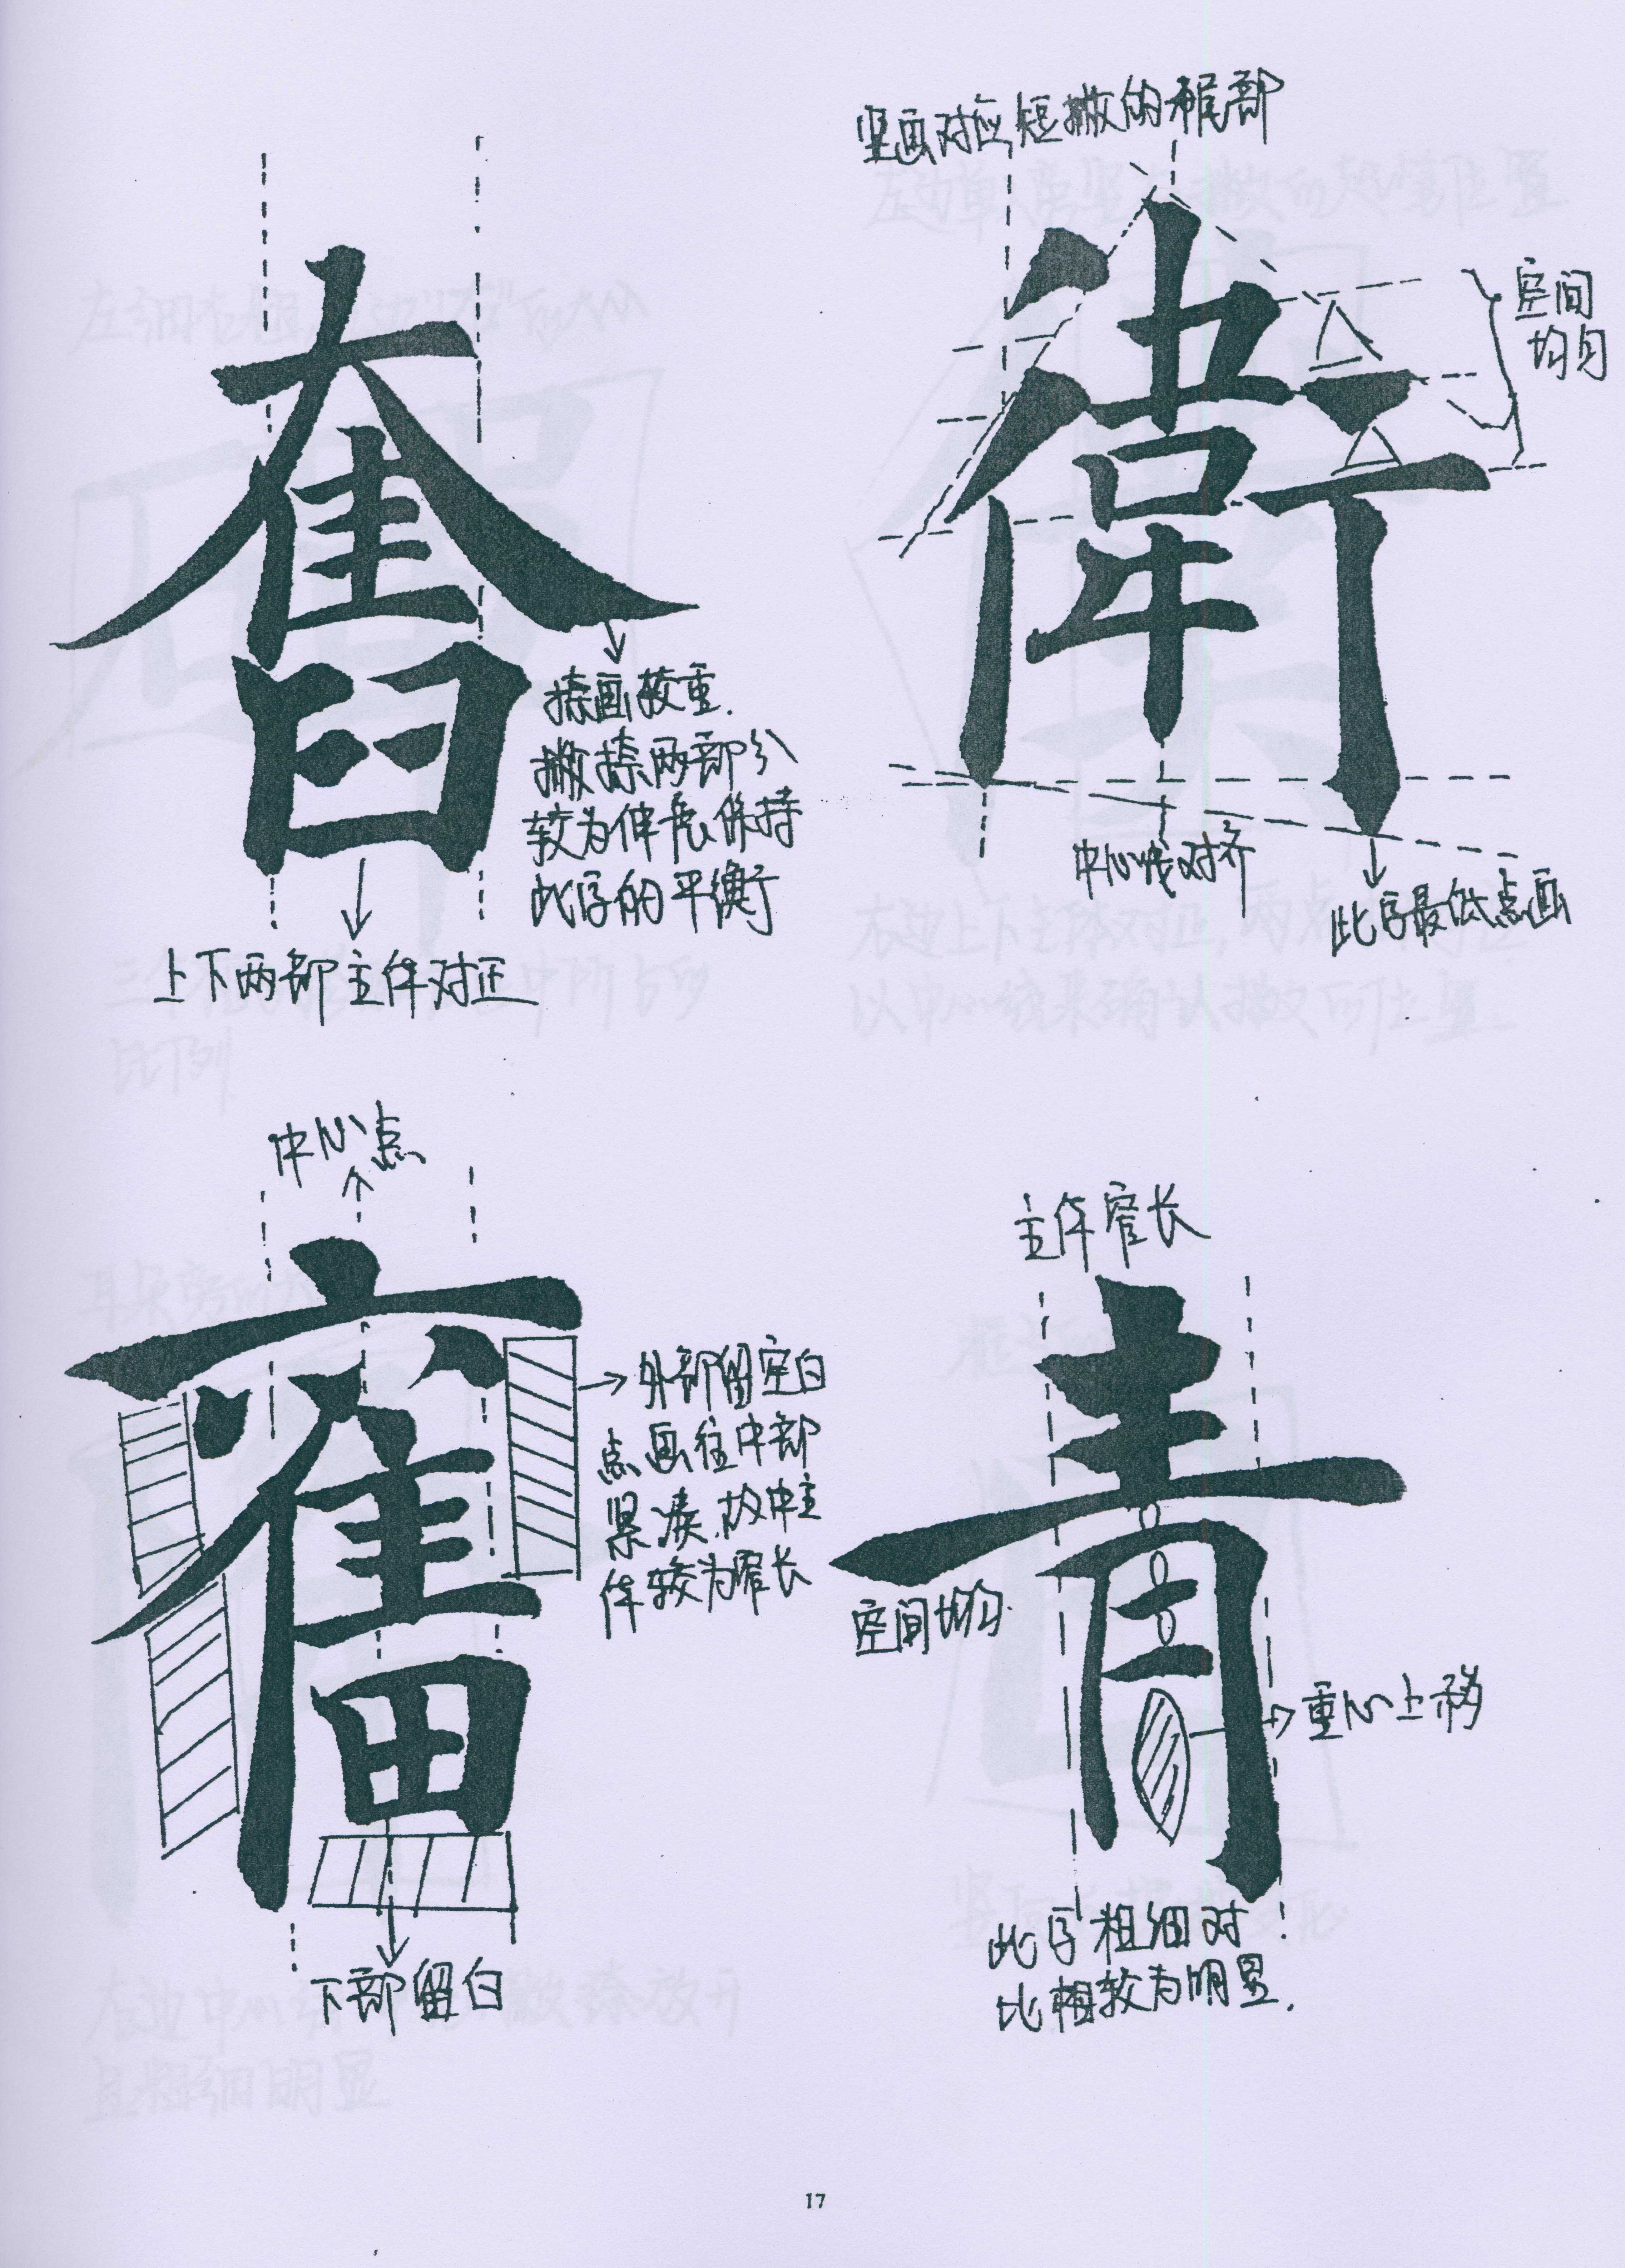 奮
捺画较重.
撇捺两部分
较为伸展保持
此字的平衡
上下两部主体对正
竖画对应短撇的尾部
衛
空间
均匀
中心线对齐
此字最低点画
中心点
奮
外部留空白
点画往中部
紧凑.故中主
体较为窄长
下部留白
主体窄长
青
空间均匀.
重心上移
此字粗细对
比相较为明显.
17